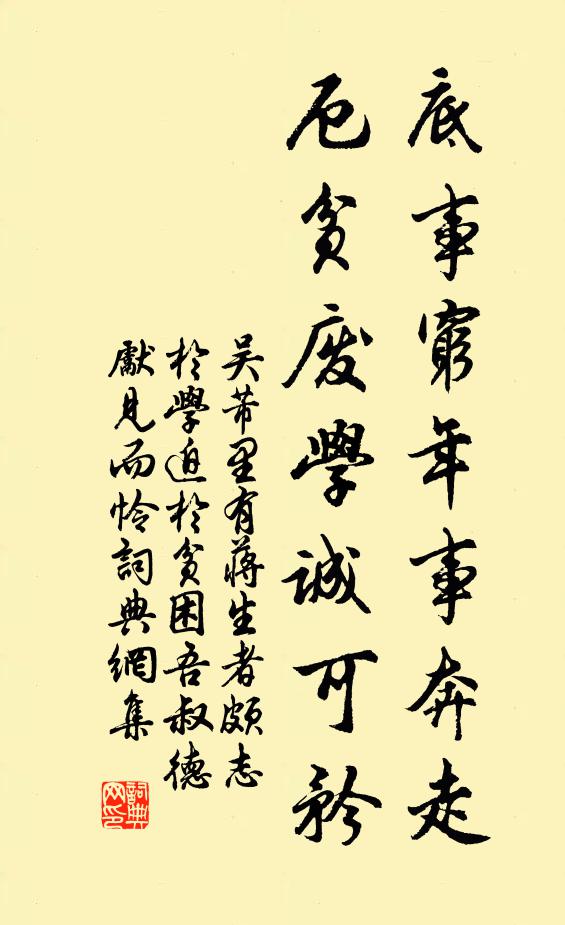 底事窮年事奔走
厄貧廢學誠可矜
吴芾里有蔣生者頗志
於學迫於貧困吾叔德
獻見而怜詞典網集
詞典網印